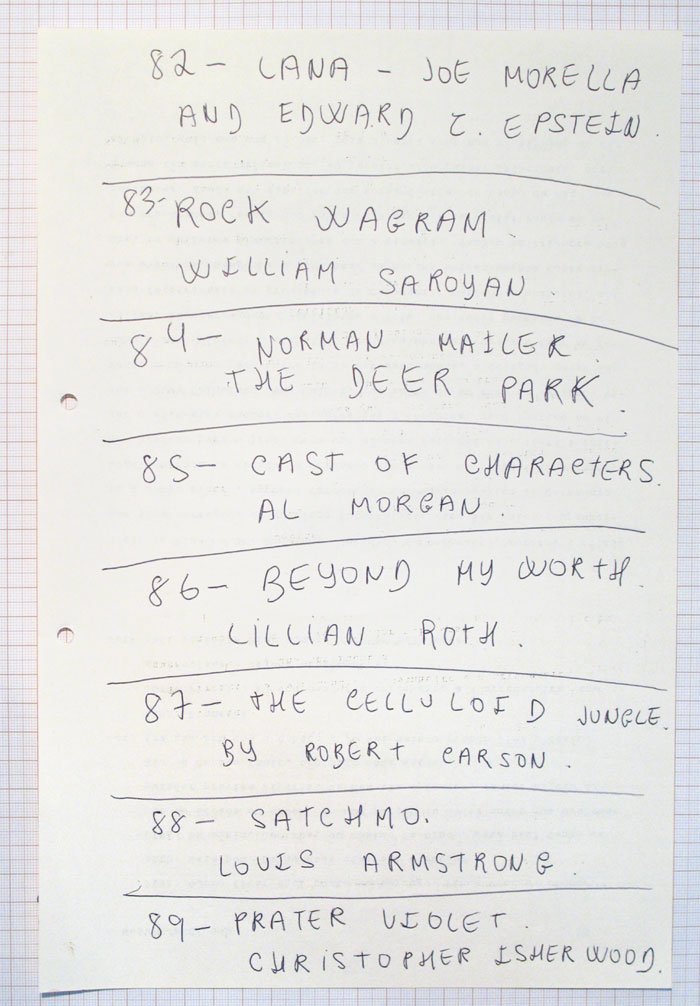 82 - LANA - JOE MORELLA
AND EDWARD Z. EPSTEIN.
83- ROCK WAGRAM.
WILLIAM SAROYAN
84 - NORMAN MAILER.
THE DEER PARK.
85 - CAST OF CHARACTERS.
AL MORGAN.
86 - BEYOND MY WORTH.
LILLIAN ROTH.
87 - THE CELLULOID JUNGLE.
BY ROBERT CARSON.
88 - SATCHMO.
LOUIS ARMSTRONG.
89 - PRATER VIOLET.
CHRISTOPHER ISHERWOOD.